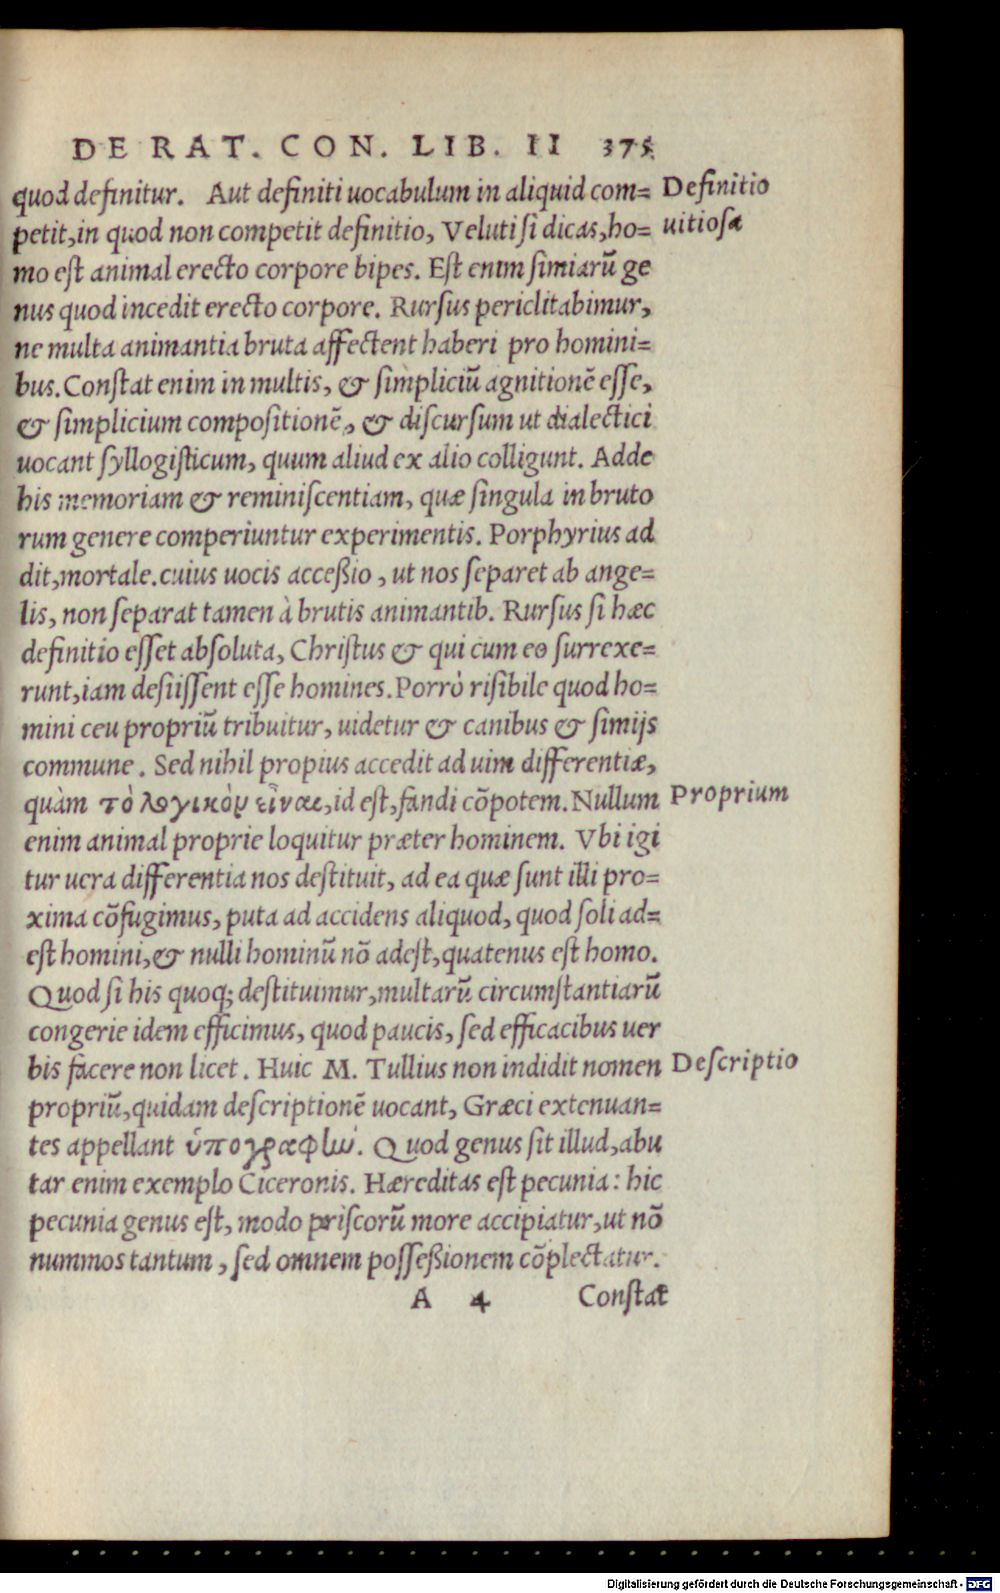 DE RAT. CON. LIB. II 375
quod definitur. Aut definiti uocabulum in aliquid com=
Definitio
petit, in quod non competit definitio, Veluti si dicas, ho=
uitiosa
mo est animal erecto corpore bipes. Est enim simiarū ge
nus quod incedit erecto corpore. Rursus periclitabimur,
ne multa animantia bruta affectent haberi pro homini=
bus. Constat enim in multis, & simpliciū agnitionē esse,
& simplicium compositionē, & discursum ut dialectici
uocant syllogisticum, quum aliud ex alio colligunt. Adde
his memoriam & reminiscentiam, quæ singula in bruto
rum genere comperiuntur experimentis. Porphyrius ad
dit, mortale. cuius uocis acceßio, ut nos separet ab ange=
lis, non separat tamen à brutis animantib. Rursus si hæc
definitio esset absoluta, Christus & qui cum eo surrexe=
runt, iam desiissent esse homines. Porrò risibile quod ho=
mini ceu propriū tribuitur, uidetur & canibus & simijs
commune. Sed nihil propius accedit ad uim differentiæ,
quàm τὸ λογικὸν εἶναι, id est, fandi cōpotem. Nullum
Proprium
enim animal proprie loquitur præter hominem. Vbi igi
tur uera differentia nos destituit, ad ea quæ sunt illi pro=
xima cōfugimus, puta ad accidens aliquod, quod soli ad=
est homini, & nulli hominū nō adest, quatenus est homo.
Quod si his quoq; destituimur, multarū circumstantiarū
congerie idem efficimus, quod paucis, sed efficacibus uer
bis facere non licet. Huic M. Tullius non indidit nomen
Descriptio
propriū, quidam descriptionē uocant, Græci extenuan=
tes appellant ὑπογραφὴν. Quod genus sit illud, abu
tar enim exemplo Ciceronis. Hæreditas est pecunia: hic
pecunia genus est, modo priscorū more accipiatur, ut nō
nummos tantum, sed omnem posseßionem cōplectatur.
A 4 Constat
Digitalisierung gefördert durch die Deutsche Forschungsgemeinschaft - DFG